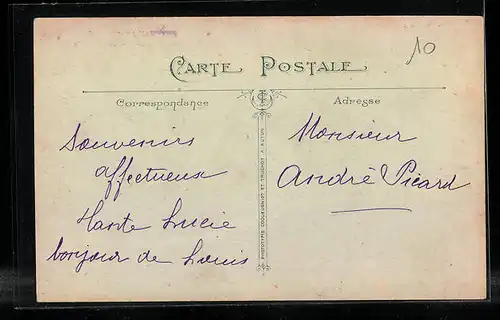 10
CARTE POSTALE
Correspondance
Adresse
Souvenirs
affectueux
Tante Lucie
bonjour de Louis
Monsieur
André Picard
PHOTOTYPIE COQUEUGNIOT ET TRUCHOT A AUTUN